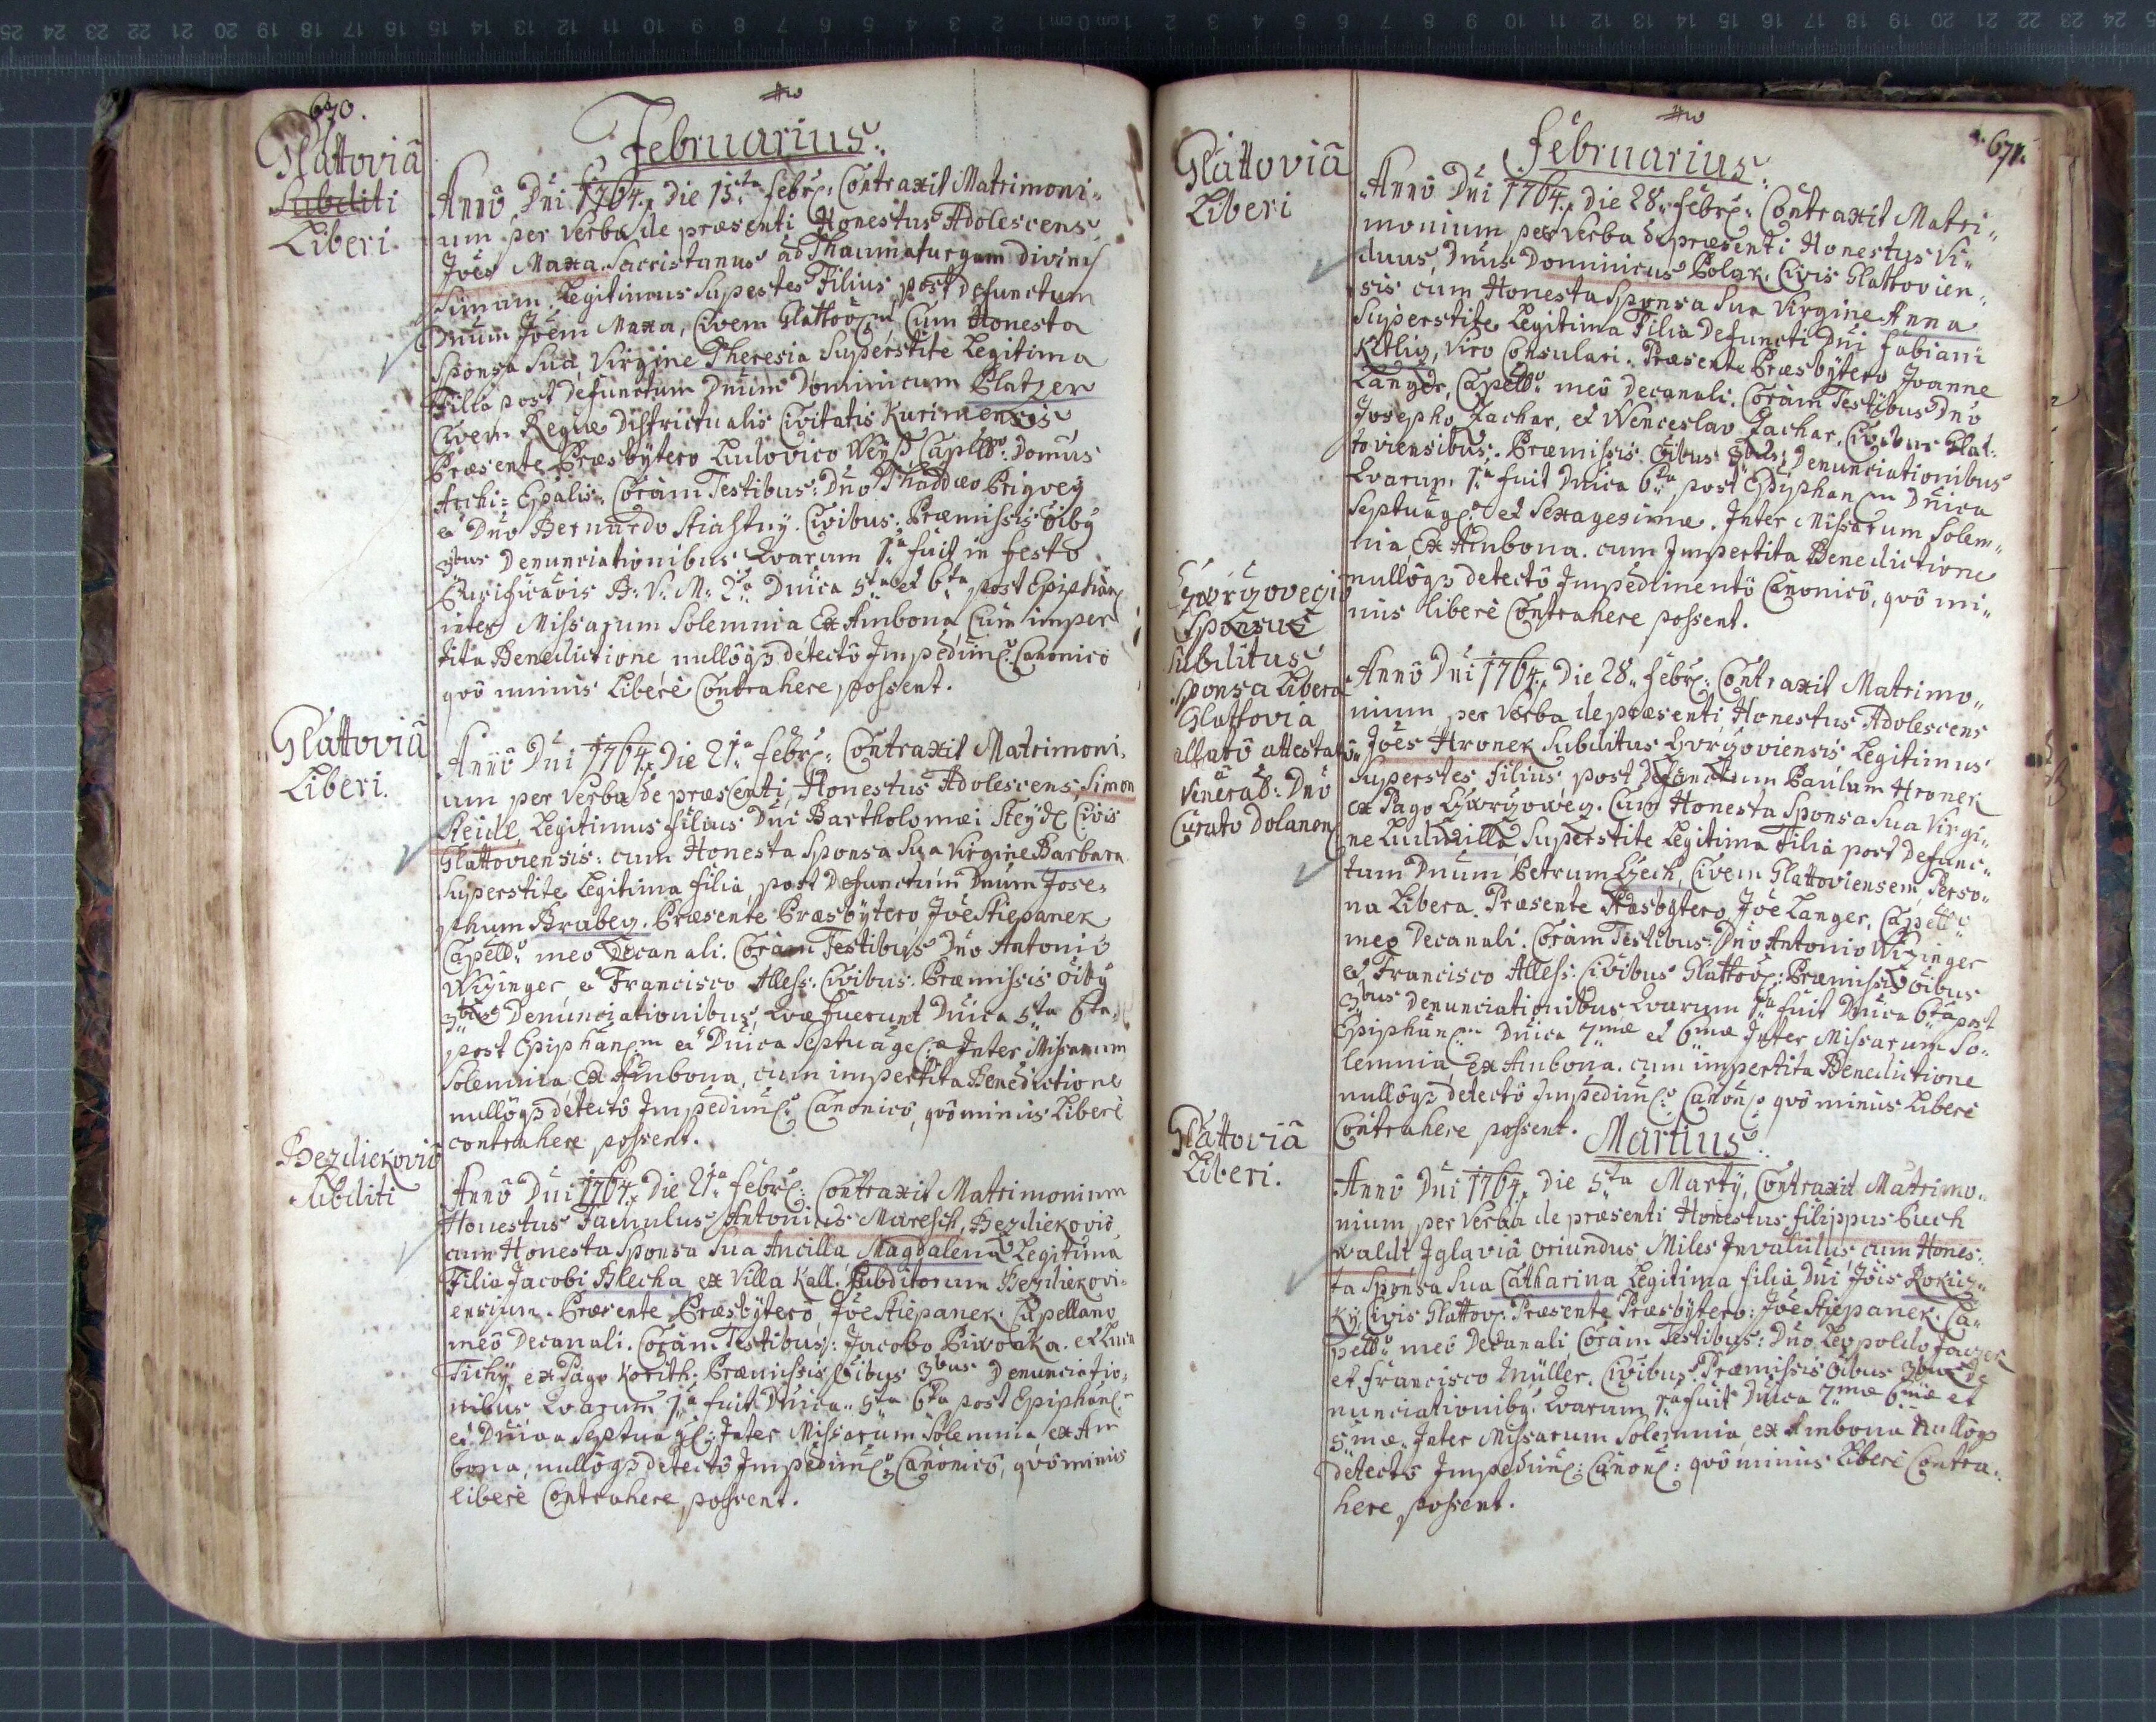 670.
Februarius.
Glattoviâ
Subditi
Liberi.
Annô Dni 1764. Die 15ta Febr: Contraxit Matrimoni=
um per verba de præsenti Honestus Adolescens
Joes Maxa Sacristanus ad Thaumaturgam Divinis
simam, Legitimus Supestes Filius post Defunctum
Dnum Joem Maxa, Civem Glattov: Cum Honesta
Sponsa Sua, Virgine Theresia Superstite Legitima
Filia post defunctum Dnum Dominicum Platzer
Civem Regiæ Districtualis Civitatis Kurimensis
Præsente Præsbytero Ludovico Weyß Capello: Domus
Archi=Epalis. Coràm Testibus: Dno Thaddæo Prigvey
et Dno Bernardo Stiastny. Civibus. Præmissis oiby
3bus Denunciationibus Qvarum 1a fuit in festo
Purificaōis B: V: M: 2da Dnica 5ta et 6ta post Epiphan
inter Missarum Solemnia Ex Ambona Cum imper
tita Benedictione nullôq3 détectô Impedim: Canonico
qvô minùs Liberè Contrahere possent.
Glattoviâ
Liberi.
Annô Dni 1764. Die 21a Febr: Contraxit Matrimoni,
um per verba de præsenti, Honestus Adolescens, Simon
Steidl, Legitimus filius Dni Bartholomæi Steydl Civis
Glattoviensis: cum Honesta Sponsa Sua Virgine Barbara
Superstite Legitima filia, post Defunctum Dnum Jose,
phum Brabeg. Præsente Præsbytero Joe Stiepanek
Capello: meo Decanali. Coràm Testibus Dno Antonio
Wizinger et Francisco Alless. Civibus. Præmissis oiby
3bus Denunciationibus, Qvæ fuerunt Dnica 5ta 6ta
post Epiphan:m et Dnica Septuage:æ Inter Missarum
Solemnia Ex Ambona, cum impertita Benedictione
nullôq3 détectô Impedim: Canonicô, qvô minùs Liberè
contrahere possent.
Bezdiekoviô
Subditi
Annô Dni 1764. Die 21a Febr: Contraxit Matrimonium
Honestus Famulus Antonius Maresch, Bezdiekoviô
cum Honesta Sponsa Sua Ancilla Magdalena Legitima
Filia Jacobi Blecha ex Villa Kall. Subditorum Bezdiekovi=
ensium. Præsente Præsbytero, Joe Stiepanek Capellano
meô Decanali. Coràm Testibus: Jacobo Piwonka. et Luca
Tichy ex Pago Korith: Præmissis Oibus 3bus Denunciatio,
nibus Qvarum 1a fuit Dnica 5ta 6ta post Epiphan:
et Dnica Septuag: Inter Missarum Solemnia ex Am
bona, nullôq3 detectô Impedim: Canonicô, qvô minùs
liberè Contrahere possent.
671.
Februarius.
Glattoviâ
Liberi
Annô Dni 1764. Die 28. Febr: Contraxit Matri=
monium per verba de præsenti Honestus Vi=
duus, Dnus Dominicus Polak. Civis Glattovien=
sis cum Honesta Sponsa Sua Virgine Anna
Superstite Legitima Filia Defuncti Dni Fabiani
Kitlig, Viro Consulari. Præsente Præsbytero Joanne
Langer, Capello: meô Decanali. Coràm Testibus Dno
Josepho Zachar, et Wenceslao Zachar, Civibus Glat=
toviensibus. Præmissis Oibus 3bus Denunciationibus
Qvarum 1a fuit Dnica 6ta post Epyphan:m Dnica
Septuag: et Sexagesimæ. Inter Missarum Solem=
nia Ex Ambona. cum Impertita Benedictione
nullôq3 detectô Impedimentô Canonicô, qvô mi=
nùs liberè Contrahere possent.
Sponsus
Subditus
Sponsa Libera
Glattovia
allatô attestatô
Venerab: Dno
Curato Dolanen
Annô Dni 1764. Die 28. Febr: Contraxit Matrimo=
nium per Verba de præsenti Honestus Adolescens
Joes Hronek Subditus Legitimus
Superstes filius post Defunctum Paulum Hronek
ex Pago Cum Honesta Sponsa Sua Virgi=
ne Ludmilla Superstite Legitima Filia post Defunc=
tum Dnum Petrum Czech, Civem Glattoviensem, Perso=
na Libera. Præsente Præsbytero Joe Langer, Capello
meo Decanali. Coràm Testibus: Dno Antonio Wizinger
et Francisco Alless: Civibus Glattov: Præmissis oibus
3bus Denunciationibus Qvarum 1a fuit Dnica 6ta post
Epiphan:m Dnica 7mæ et 6mæ Inter Missarum So=
lemnia ex Ambona. cum impertita Benedictione
nullôq3 detectô Impedim: Canon: qvô minùs Liberè
Contrahere possent.
Martius.
Glattoviâ
Liberi.
Annô Dni 1764. Die 5ta Marty, Contraxit Matrimo=
nium per Verba de præsenti Honestus Filippus Buch
waldt Iglaviâ oriundus Miles Invalidus, cum Hones=
ta Sponsa Sua Catharina Legitima filia Dni Jois Rokiz=
ky, Civis Glattov: Præsente Præsbytero: Joe Stiepanek. Ca=
pello: meô Decanali Coràm Testibus: Dno Leopoldo
et Francisco Müller. Civibus. Præmissis Oibus 3bus De
nunciationiby. Qvarum 1a fuit Dnica 7mæ 6mæ et
5mæ. Inter Missarum Solemnia ex Ambona nullôq3
detectô Impedim: Canon: qvô minùs Liberè Contra=
here possent.